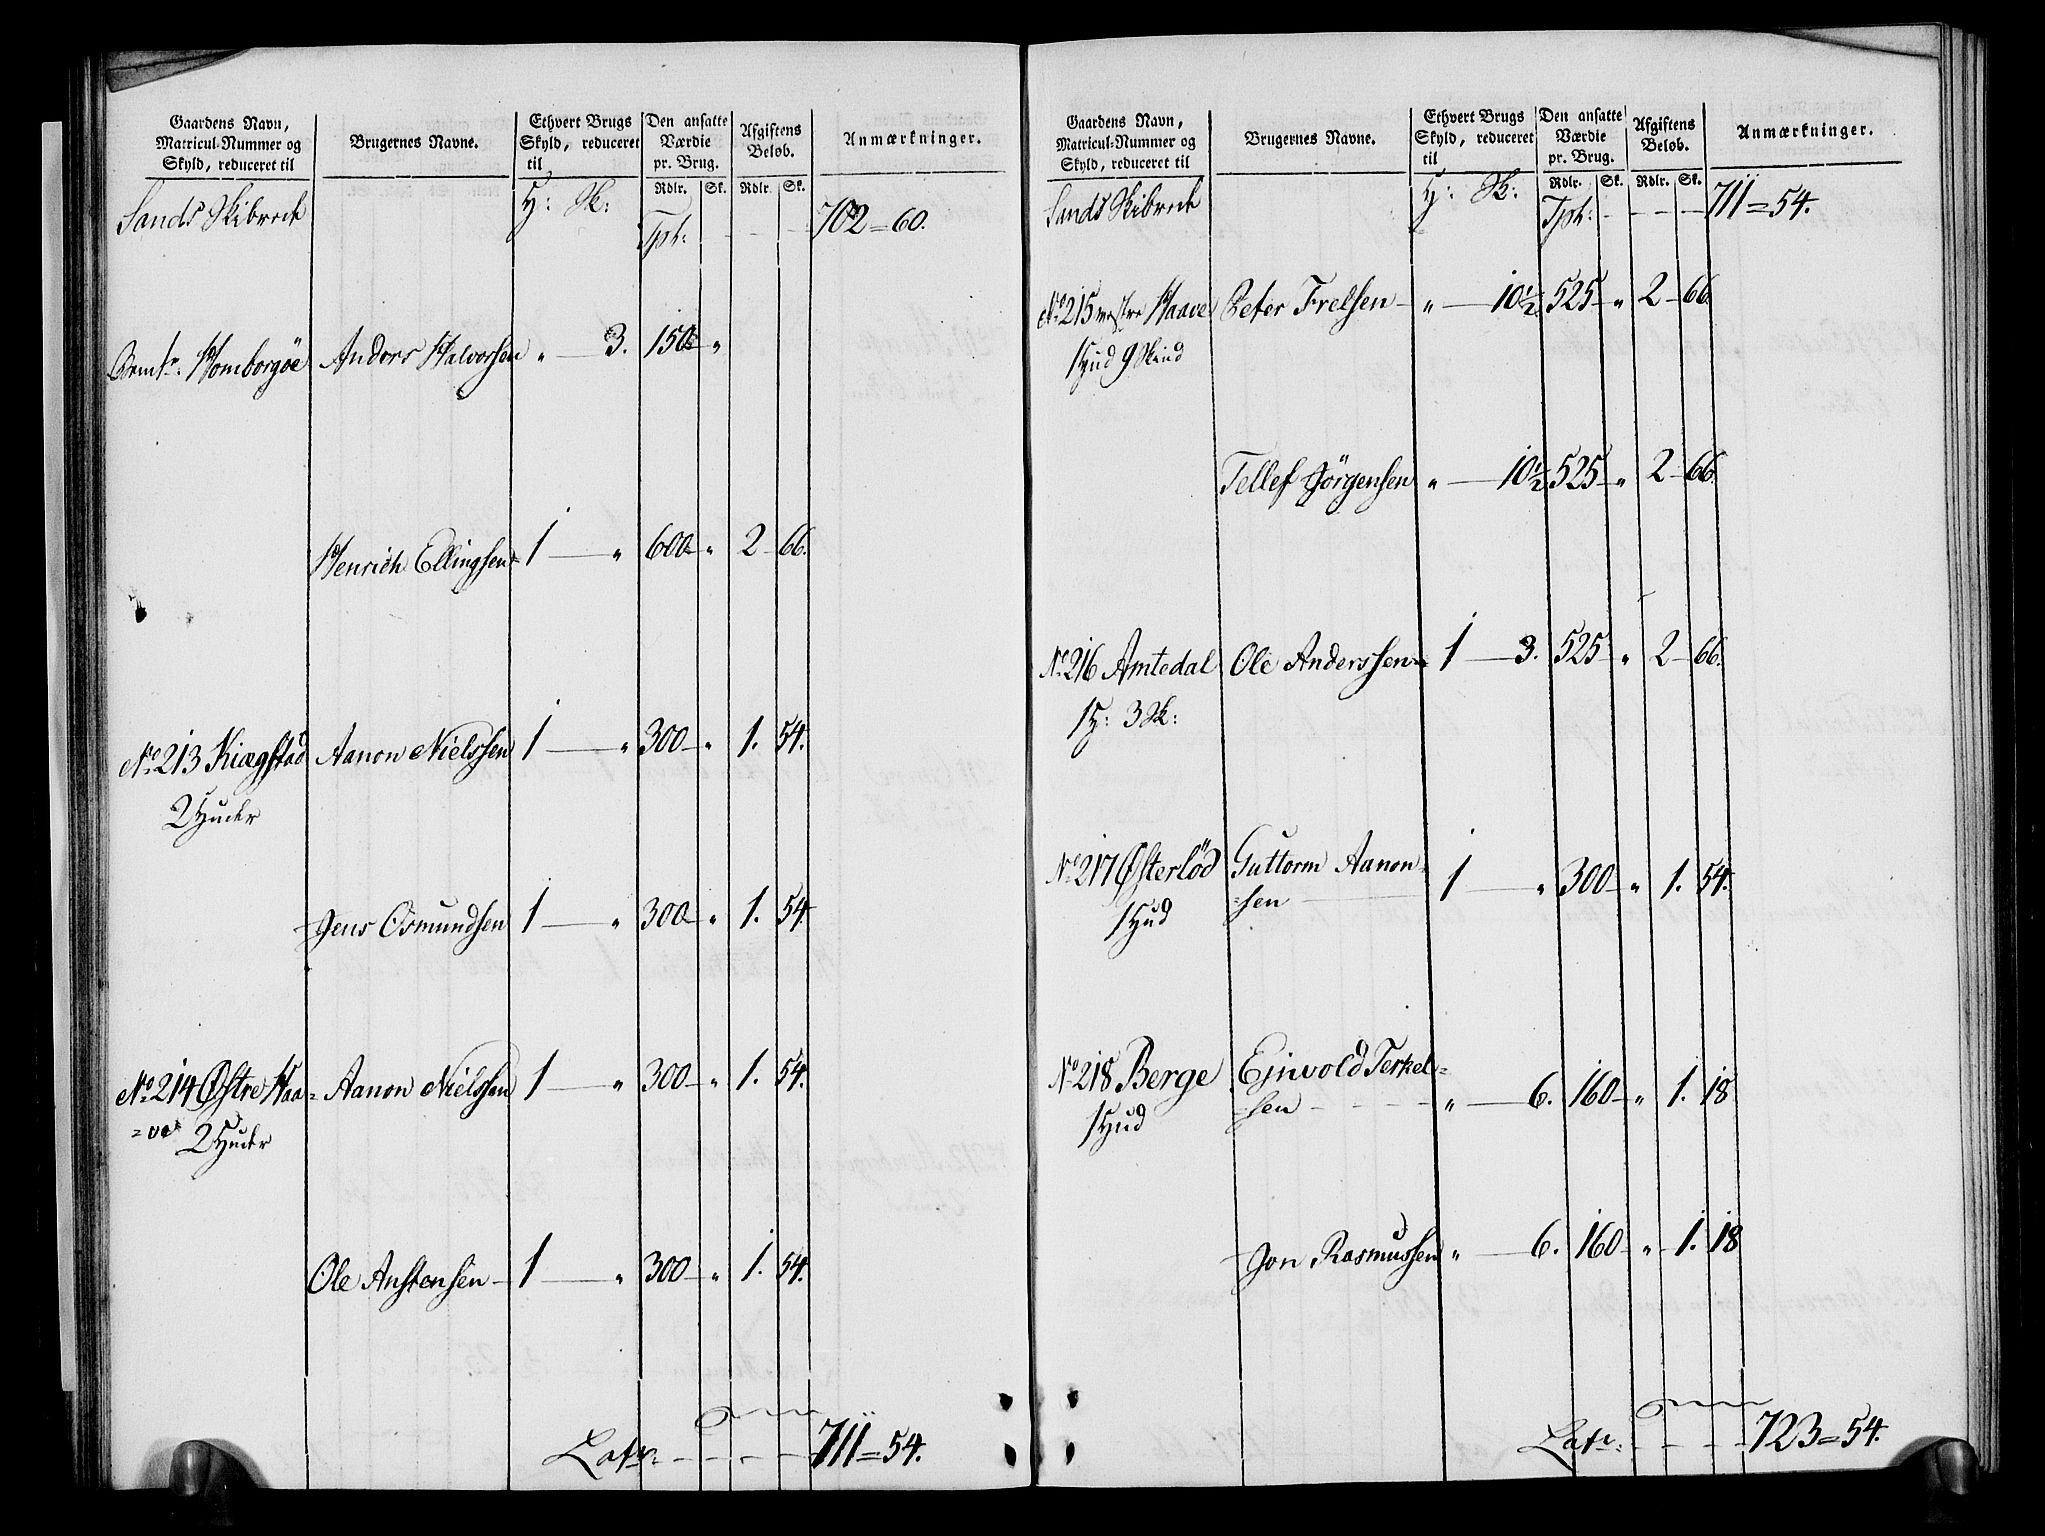 Gaardens Navn,
Matricul-Nummer og
Skyld, reduceret til
Brugernes Navne.
Ethvert Brugs
Skyld, reduceret
til
Den ansatte
Værdie
pr. Brug.
Afgiftens
Beløb.
Anmærkninger.
Rdlr. Sk. Rdlr. Sk.
Sands Skibrede H: Sk: Tpt: - - - 702 = 60.
Homborgöe Anders Halvorsen " 3. 150 "
Henrich Ellingsen 1 " 600 " 2 66.
No 213 Kiægstad Aanon Nielssen 1 " 300 " 1. 54.
2 Huder
Jens Osmundsen 1 " 300 " 1. 54.
No 214 Østre Haa= Aanon Nielssen 1 " 300 " 1. 54.
=ve 2 Huder
Ole Anstensen 1 " 300 " 1. 54.
Latr: - - - 711 = 54.
Gaardens Navn,
Matricul-Nummer og
Skyld, reduceret til
Brugernes Navne.
Ethvert Brugs
Skyld, reduceret
til
Den ansatte
Værdie
pr. Brug.
Afgiftens
Beløb.
Anmærkninger.
Rdlr. Sk. Rdlr. Sk.
Sands Skibrede H: Sk: Tpt: - - - 711 = 54.
No 215 vestre Haave Peter Frelsen " 10½ 525 " 2 66.
1 Hud 9 Skind
Tellef Jörgensen " 10½ 525 " 2 66.
No 216 Amtedal Ole Anderssen 1 3. 525 " 2 66.
1 H: 3 Sk:
No 217 Østerlöd Guttorm Aanon= 1 " 300 " 1. 54.
1 Hud =sen
No 218 Berge Ejnvold Terkel=
1 Hud =sen " 6. 160 " 1. 18
Jon Rasmussen " 6. 160 " 1. 18
Latr: - - - 723 = 54.